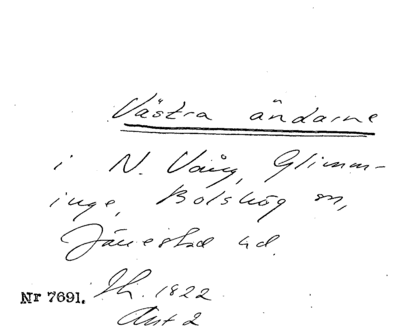 Västra ändarne
i N. Vång, Glimm-
inge, Bolshög m,
Järrestad hd.
Nr 7691. Th. 1822
Ant 2